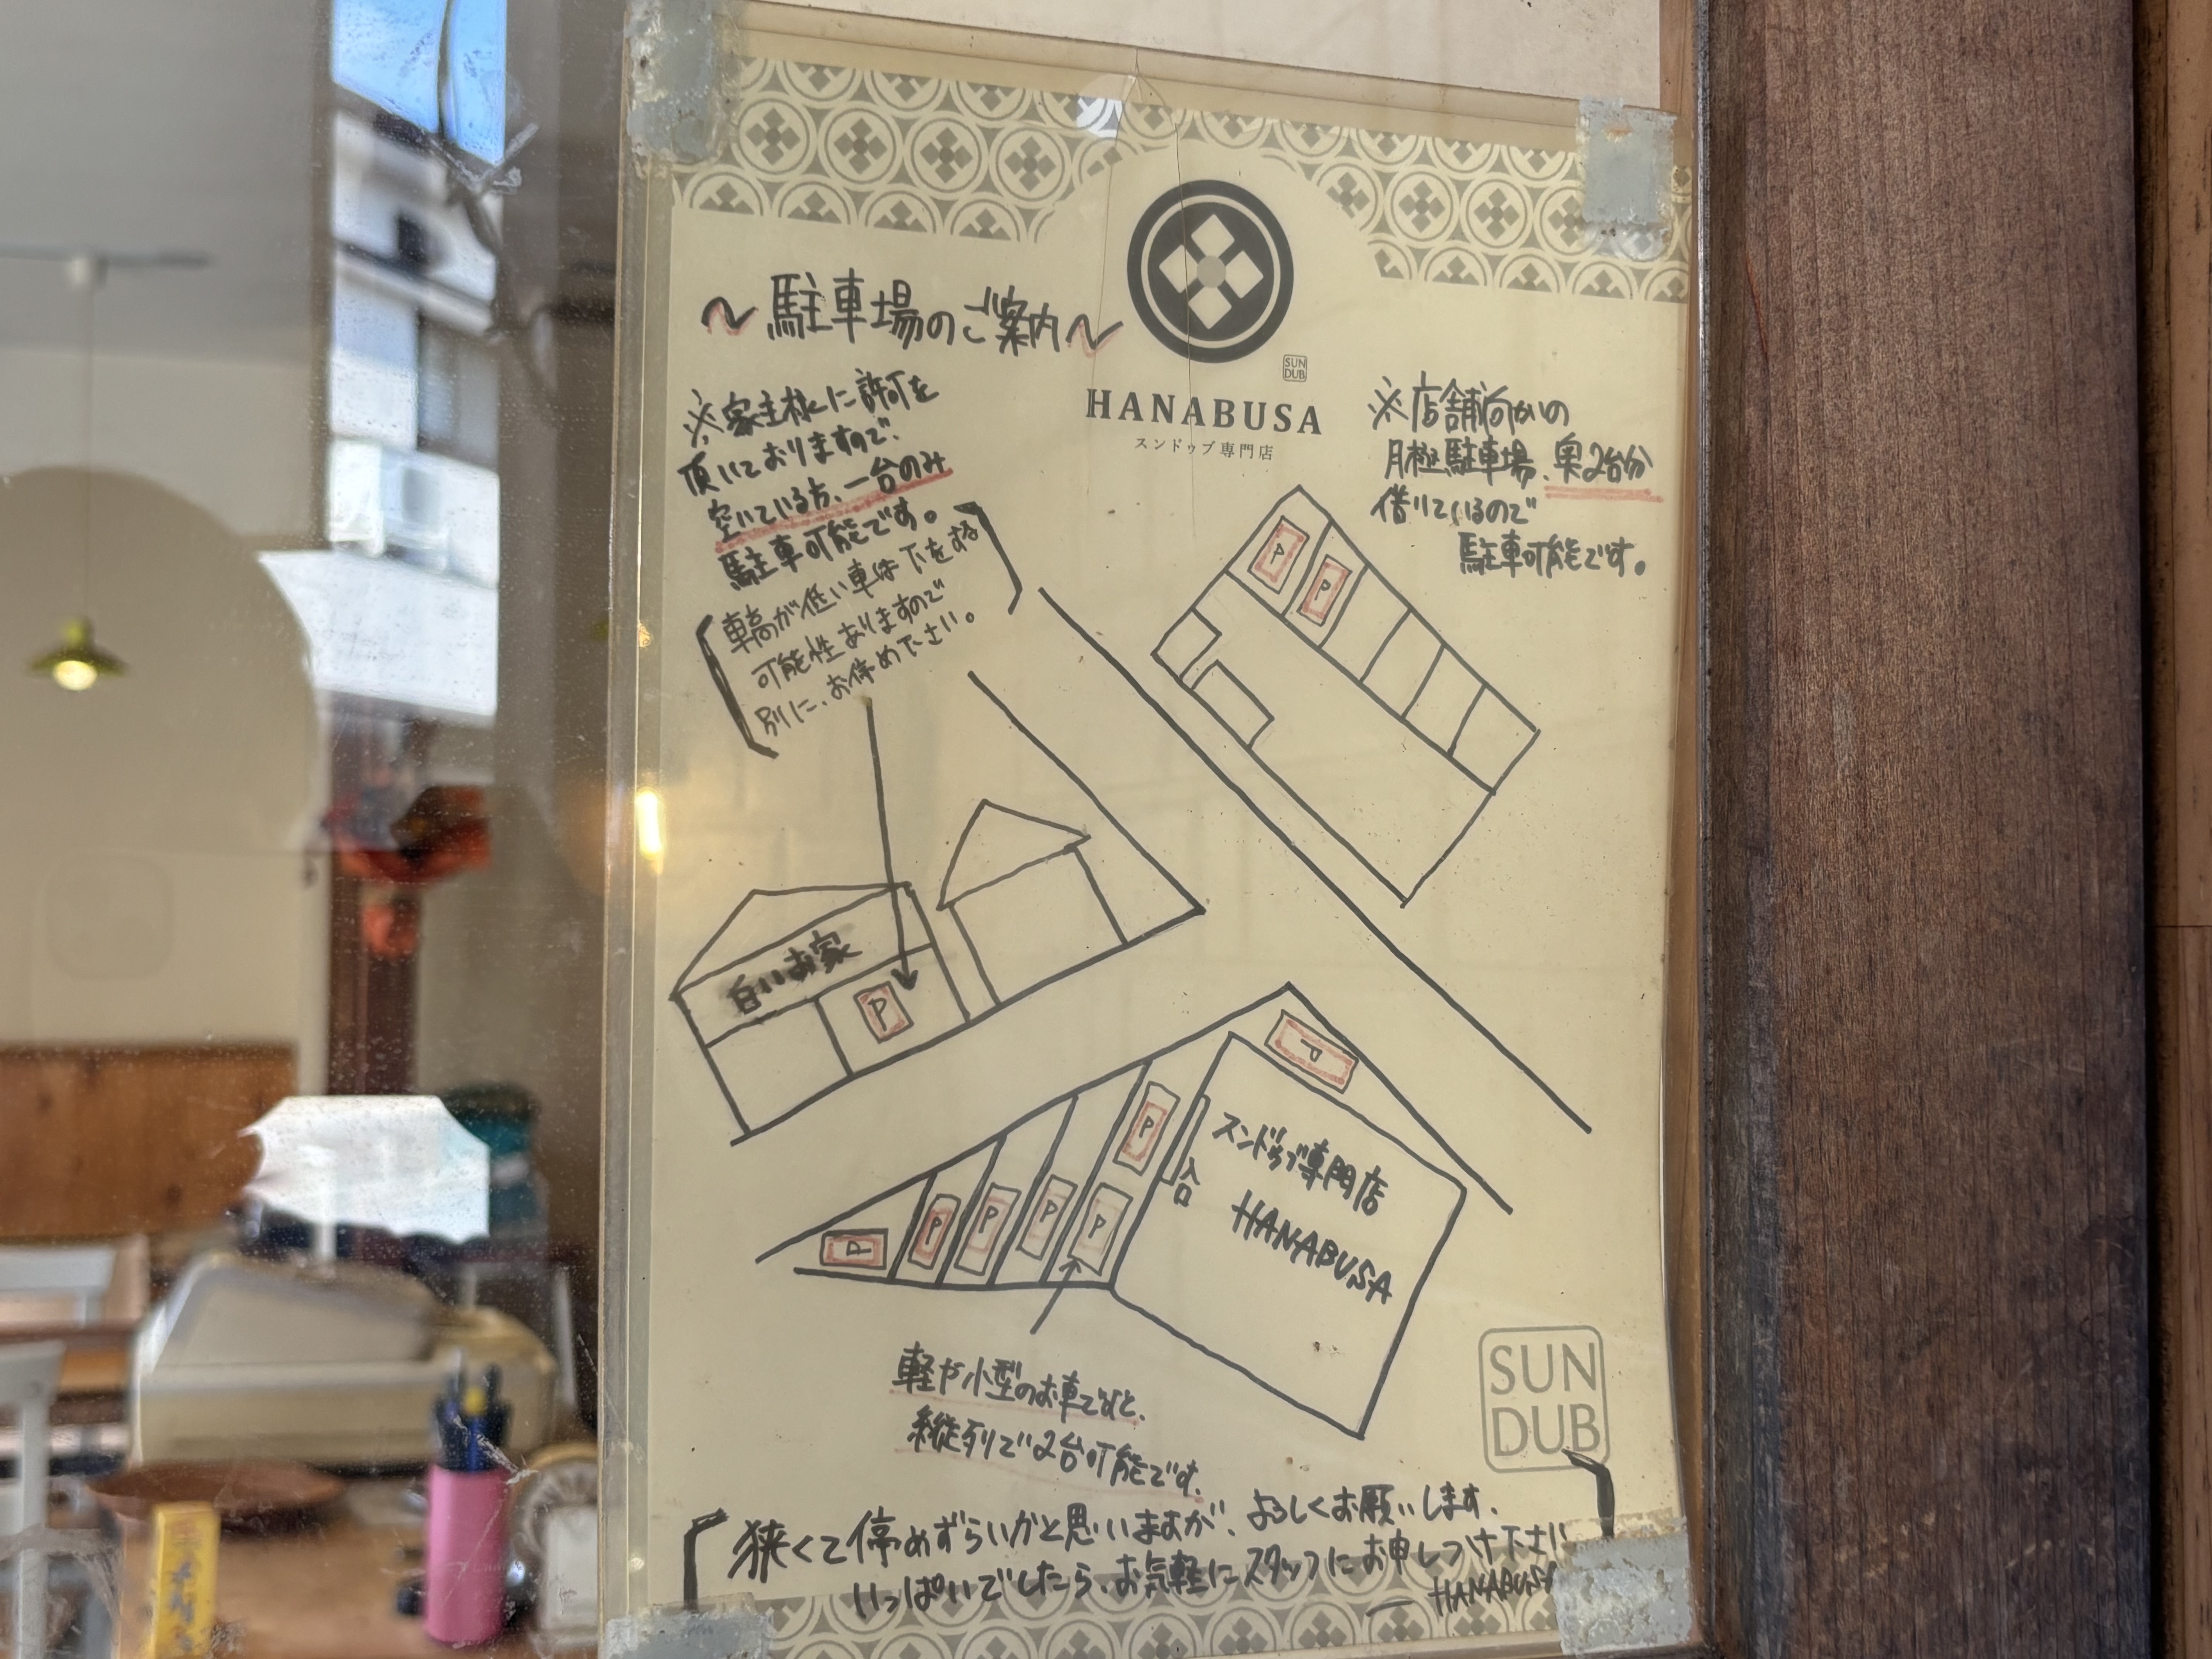 〜駐車場のご案内〜
SUN
DUB
HANABUSA
スンドゥブ専門店
※家主様に許可を
頂いておりますので、
空いている方、一台のみ
駐車可能です。
車高が低い車は下をする
可能性ありますので
別に、お停め下さい。
※店舗向かいの
月極駐車場、奥2台分
借りているので
駐車可能です。
P
P
白いお家
P
P
P
P
P
P
P
P
入口
スンドゥブ専門店
HANABUSA
軽や小型のお車だと、
縦列で2台可能です。
SUN
DUB
狭くて停めずらいかと思いますが、よろしくお願いします。
いっぱいでしたら、お気軽にスタッフにお申しつけ下さい
— HANABUSA